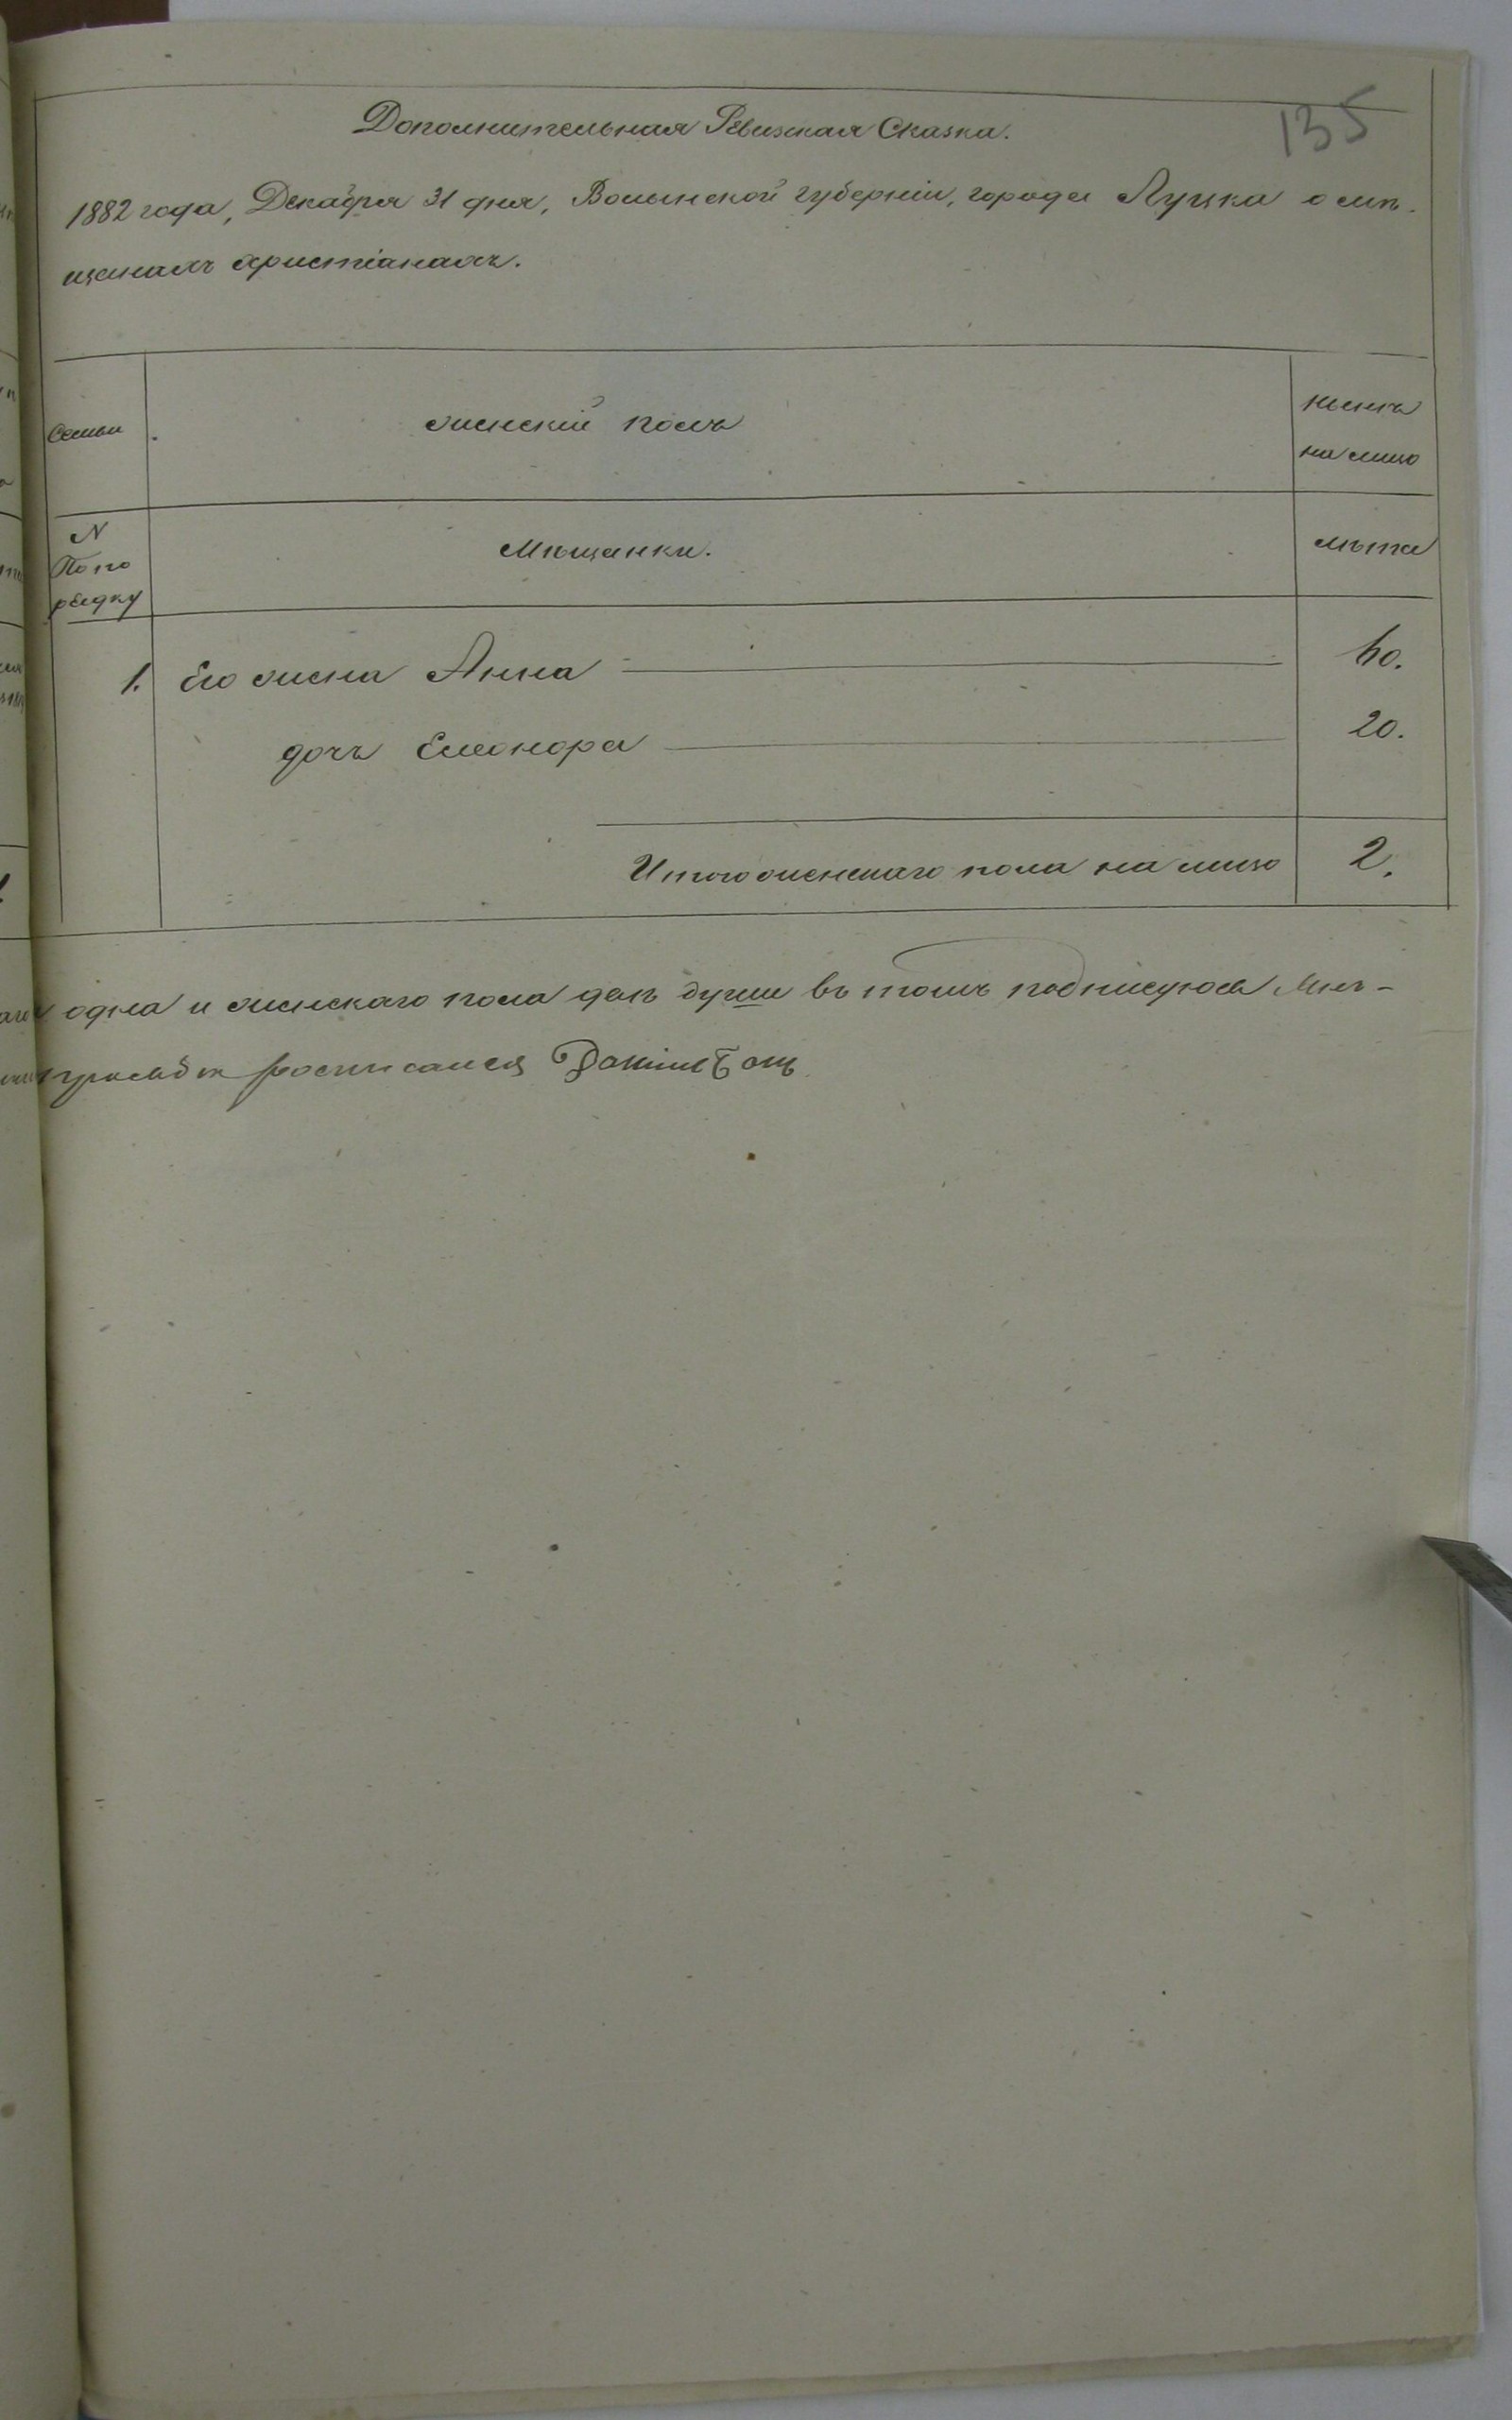 135
Дополнительная Ревизская Сказка.
1882 года, Декабря 31 дня, Волынской губерніи, города Луцка о мѣ-
щанахъ христіанахъ.
Семьи
женскій полъ
нынѣ
на лицо
N
По по
рядку
Мѣщанки.
лѣта
1. Его жена Анна 60.
дочь Елеонора 20.
Итого женскаго пола на лицо 2.
одна и женскаго пола двѣ души въ томъ подписуюсь Мѣ-
росписался